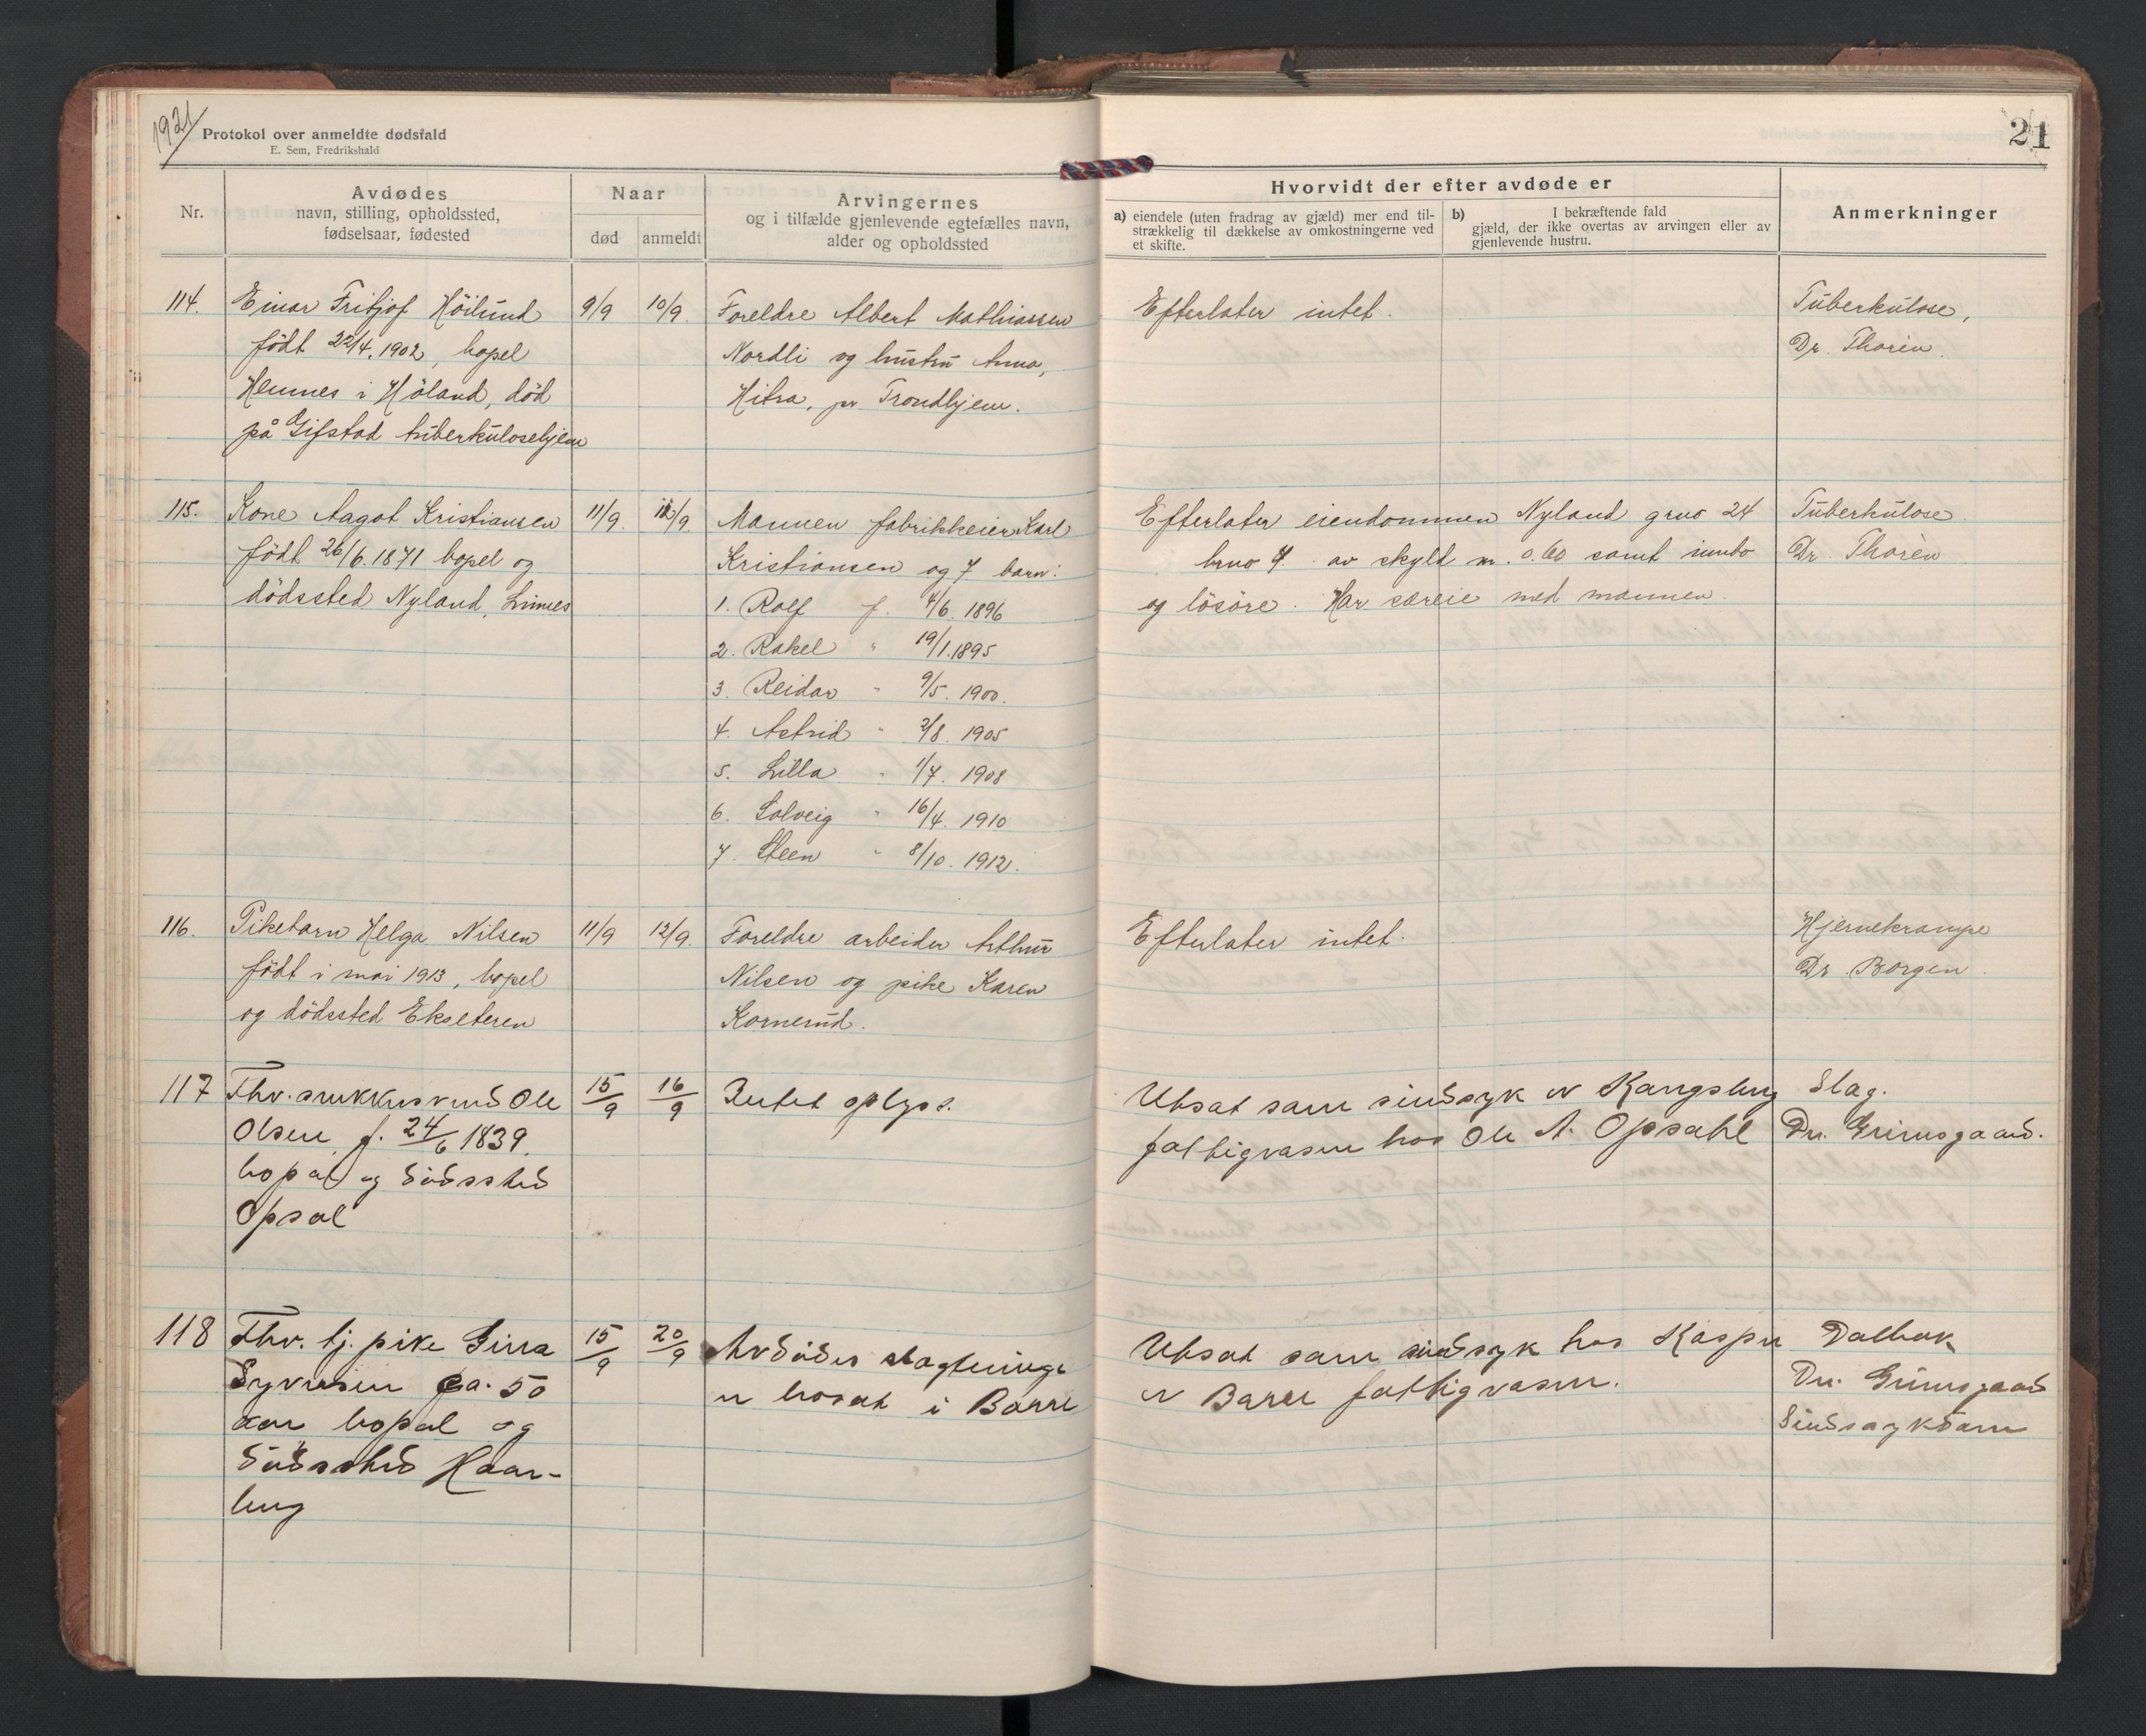 1921
Protokol over anmeldte dødsfald
E. Sem, Fredrikshald
21
Nr.
Avdødes
navn, stilling, opholdssted,
fødselsaar, fødested
Naar
død
anmeldt
Arvingernes
og i tilfælde gjenlevende egtefælles navn,
alder og opholdssted
Hvorvidt der efter avdøde er
a) eiendele (uten fradrag av gjæld) mer end til-
strækkelig til dækkelse av omkostningerne ved
et skifte.
b) I bekræftende fald
gjæld, der ikke overtas av arvingen eller av
gjenlevende hustru.
Anmerkninger
114. Einar Fritjof Höilund 9/9 10/9. Foreldre Albert Mathiassen Efterlater intet. Tuberkulose,
födt 22/4. 1902, bopel Nordli og hustru Anna, Dr. Thorèn.
Hemnes i Höland, död Hitra, pr Trondhjem.
på Gifstad tuberkulosehjem
115. Kone Aagot Kristiansen 11/9. 12/9 Mannen fabrikkeier Karl Efterlater eiendommen Nyland gruo 24 Tuberkulose
födt 26/6. 1871 bopel og Kristiansen og 7 barn: bruo 4 av skyld m. 0.60 samt innbo Dr. Thorèn
dödssted Nyland, Linnes 1. Rolf f. 4/6. 1896 og lösöre. Har særeie med mannen.
2. Rakel " 19/1. 1895
3. Reidar " 9/5. 1900.
4. Astrid " 2/8. 1905
5. Lilla " 1/7. 1908
6. Solveig " 16/4. 1910
7. Steen " 8/10. 1912.
116. Pikebarn Helga Nilsen 11/9 12/9. Foreldre arbeider Arthur Efterlater intet. Hjernekrampe
födt i mai 1913, bopel Nilsen og pike Karen Dr. Borgen.
og dödssted Ekseteren Kornerud.
117 Fhv. snekkersvend Ole 15/9 16/9 Intet oplyst. Utsat som sindssyk av Kongsberg Slag.
Olsen f. 24/6 1839. fattigvæsen hos Ole A. Opsahl Dr. Grimsgaard.
bopæl og dödssted
Opsal
118 Fhv. tj. pike Gina 15/9 20/9 Avdödes slægtninge Utsat som sindssyk hos Kasper Dalbak
Syversen ca. 50 er bosat i Borre av Borre fattigvæsen. Dr. Grimsgaard
aar bopæl og Sindssykdom
dödssted Haar-
berg